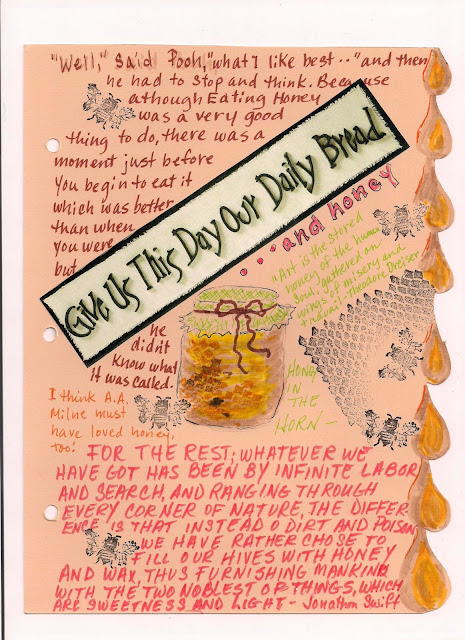 "Well," said Pooh, "what I like best.." and then
he had to stop and think. Because
athough Eating Honey
was a very good
thing to do, there was a
moment just before
you begin to eat it
which was better
than when
you were
but
he
didn't
know what
it was called.
Give Us This Day Our Daily Bread
...and honey
"Art is the stored
honey of the human
soul, gathered on
wings of misery and
Theodore Dreiser
HONEY
IN
THE
HORN—
I think A.A.
Milne must
have loved honey,
too!
FOR THE REST; WHATEVER WE
HAVE GOT HAS BEEN BY INFINITE LABOR
AND SEARCH, AND RANGING THROUGH
EVERY CORNER OF NATURE, THE DIFFER
ENCE IS THAT INSTEAD O DIRT AND POISON
WE HAVE RATHER CHOSE TO
FILL OUR HIVES WITH HONEY
AND WAX, THUS FURNISHING MANKIND
WITH THE TWO NOBLEST OF THINGS, WHICH
ARE SWEETNESS AND LIGHT - Jonathon Swift